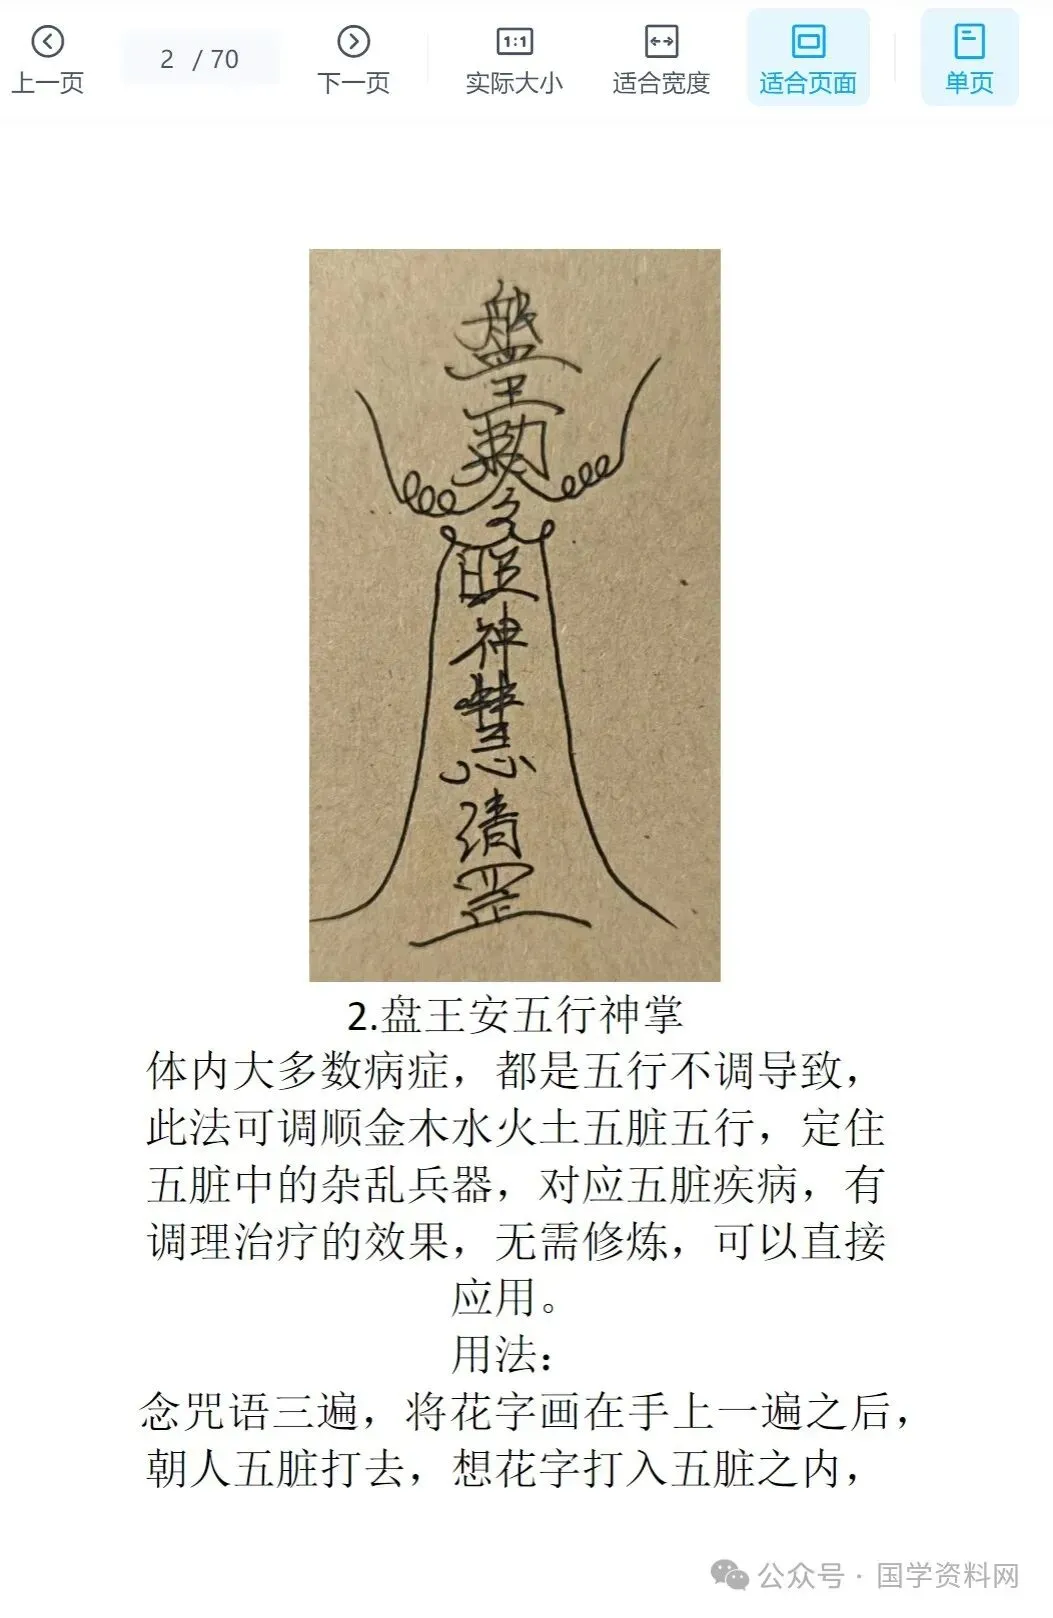 上一页
2 / 70
下一页
1:1
实际大小
适合宽度
适合页面
单页
盤
王
敕
旺
神
慧
清
罡
2.盘王安五行神掌
体内大多数病症，都是五行不调导致，
此法可调顺金木水火土五脏五行，定住
五脏中的杂乱兵器，对应五脏疾病，有
调理治疗的效果，无需修炼，可以直接
应用。
用法：
念咒语三遍，将花字画在手上一遍之后，
朝人五脏打去，想花字打入五脏之内，
公众号 · 国学资料网